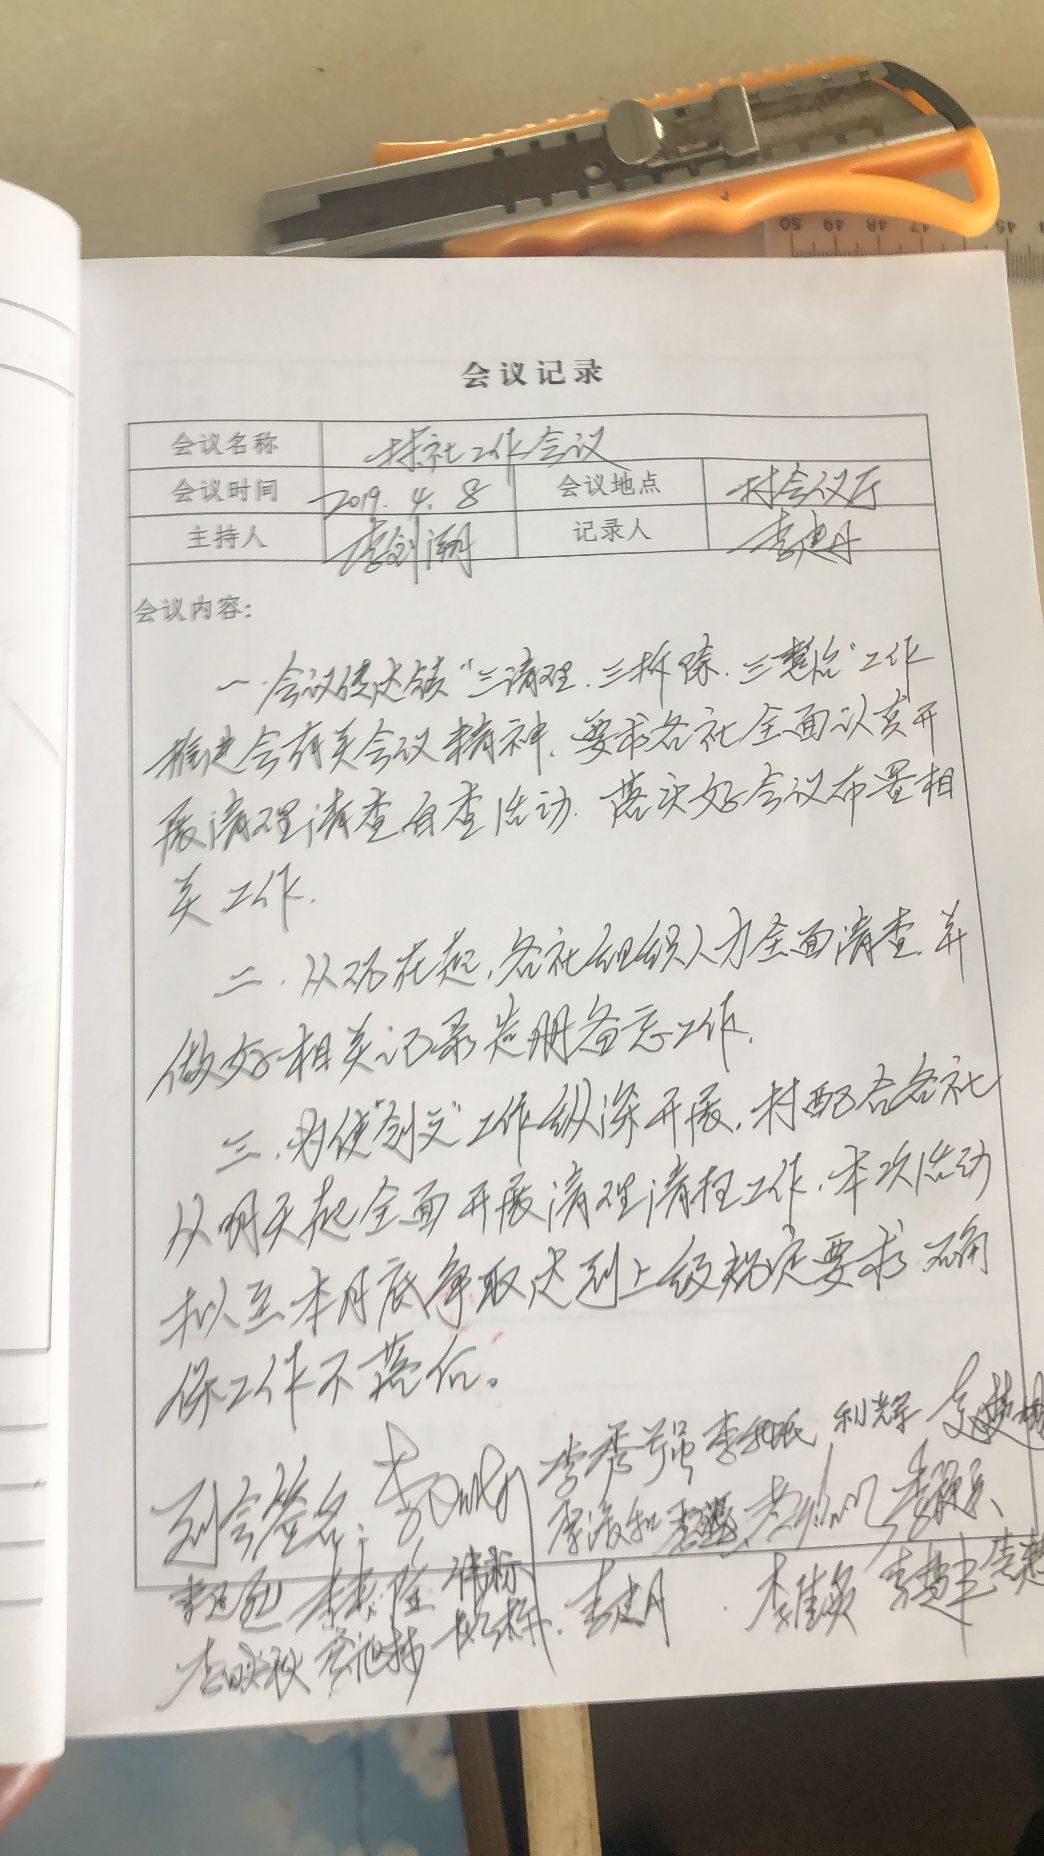 50 49 48 47 45
会议记录
会议名称 村社工作会议
会议时间 2019.4.8 会议地点 村会议厅
主持人 李剑潮 记录人 李建丹
会议内容:
一.会议传达镇“三清理.三拆除.三整治”工作
推进会有关会议精神.要求各社全面认真开
展清理清查自查活动.落实好会议布置相
关工作.
二.从现在起,各社组织人力全面清查.并
做好相关记录造册备忘工作.
三.为使“创文”工作纵深开展,村配合各社
从明天起全面开展清理清扫工作.本次活动
拟至本月底争取达到上级规定要求 确
保工作不落后。
到会签名: 李秀强 利辉
李建丹